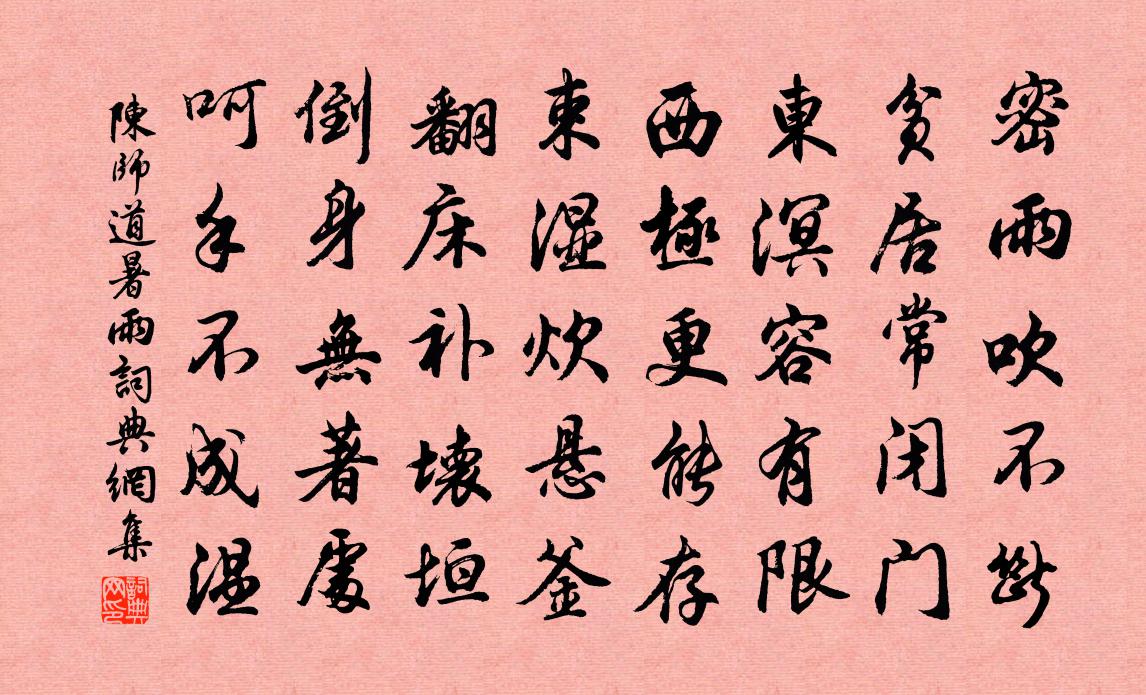 密雨吹不断
貧居常闭门
東溟容有限
西極更能存
束湿炊悬釜
翻床补壊垣
倒身無著處
呵手不成温
陳師道暑雨詞典網集
詞典網印